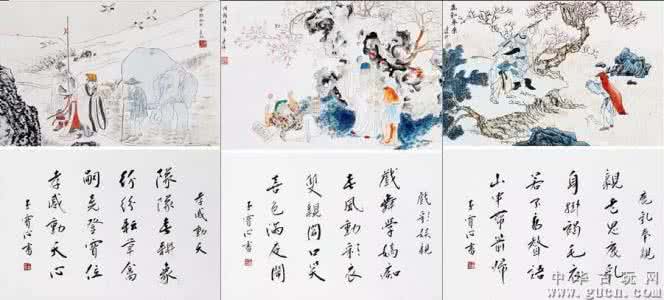 孝感動天
隊隊春耕象
紛紛耘草禽
嗣堯登寶位
孝感動天心
戲彩娛親
戲舞學嬌痴
春風動彩衣
雙親開口笑
喜色滿庭闈
鹿乳奉親
親老思鹿乳
身掛褐毛衣
若不高聲語
山中帶箭歸
中华古玩网
www.gucn.com